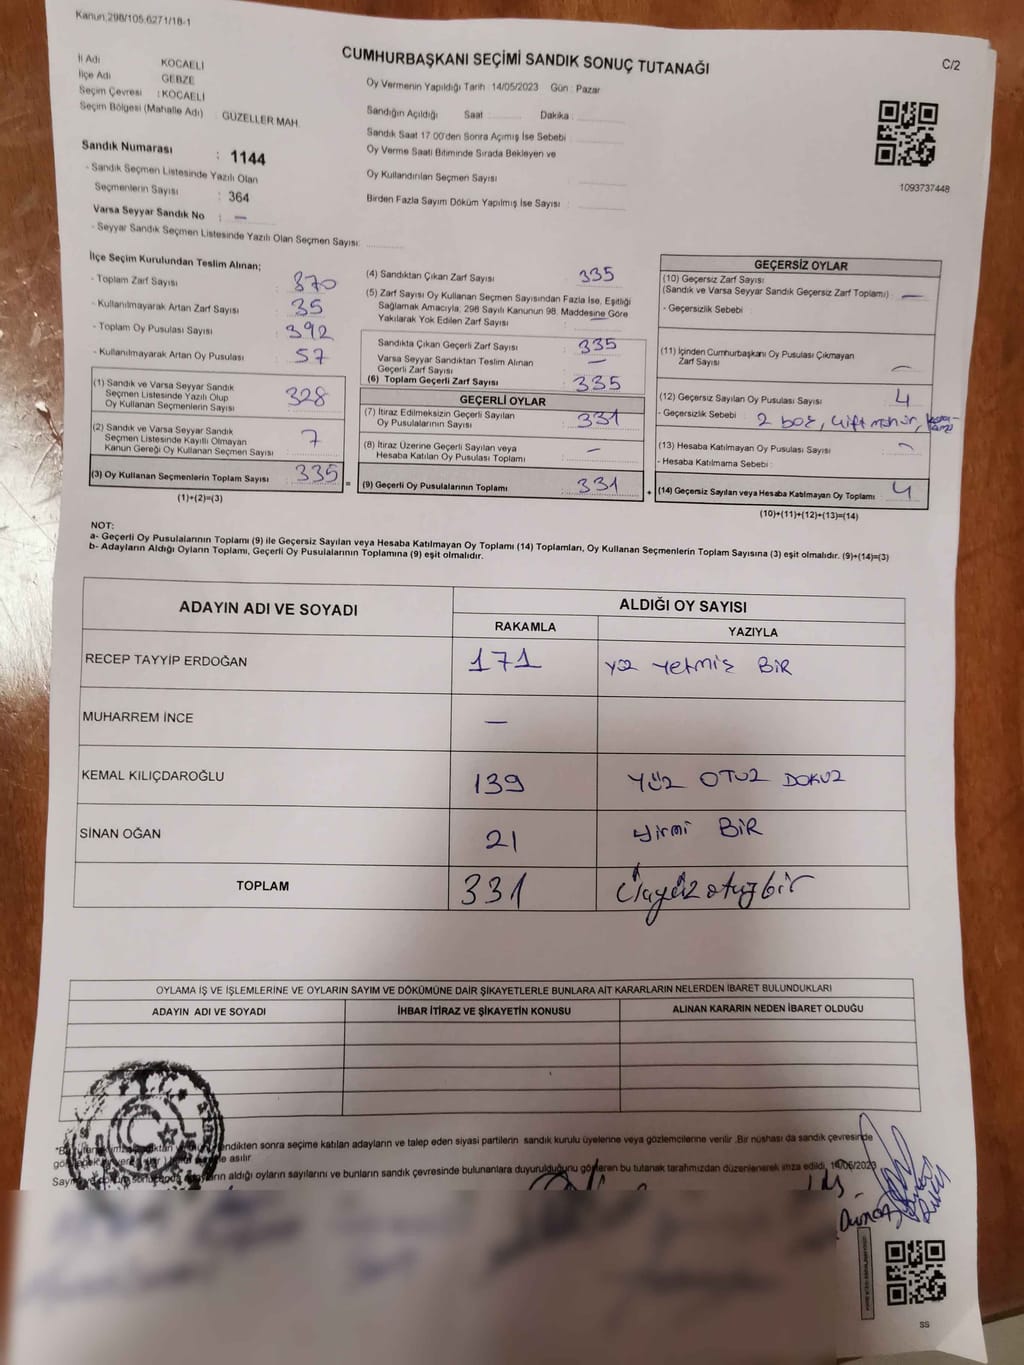 Kanun:298/105.6271/18-1
CUMHURBAŞKANI SEÇİMİ SANDIK SONUÇ TUTANAĞI
C/2
İl Adı KOCAELİ
İlçe Adı GEBZE
Seçim Çevresi : KOCAELİ
Seçim Bölgesi (Mahalle Adı) : GÜZELLER MAH.
Sandık Numarası : 1144
- Sandık Seçmen Listesinde Yazılı Olan
Seçmenlerin Sayısı : 364
Varsa Seyyar Sandık No : —
- Seyyar Sandık Seçmen Listesinde Yazılı Olan Seçmen Sayısı:
Oy Vermenin Yapıldığı Tarih : 14/05/2023 Gün : Pazar
Sandığın Açıldığı Saat Dakika
Sandık Saat 17.00'den Sonra Açımış İse Sebebi
Oy Verme Saati Bitiminde Sırada Bekleyen ve
Oy Kullandırılan Seçmen Sayısı
Birden Fazla Sayım Döküm Yapılmış İse Sayısı
1093737448
İlçe Seçim Kurulundan Teslim Alınan;
- Toplam Zarf Sayısı : 370
- Kullanılmayarak Artan Zarf Sayısı : 35
- Toplam Oy Pusulası Sayısı : 392
- Kullanılmayarak Artan Oy Pusulası : 57
(1) Sandık ve Varsa Seyyar Sandık
Seçmen Listesinde Yazılı Olup
Oy Kullanan Seçmenlerin Sayısı : 328
(2) Sandık ve Varsa Seyyar Sandık
Seçmen Listesinde Kayıtlı Olmayan
Kanun Gereği Oy Kullanan Seçmen Sayısı : 7
(3) Oy Kullanan Seçmenlerin Toplam Sayısı : 335
(1)+(2)=(3)
(4) Sandıktan Çıkan Zarf Sayısı : 335
(5) Zarf Sayısı Oy Kullanan Seçmen Sayısından Fazla İse, Eşitliği
Sağlamak Amacıyla, 298 Sayılı Kanunun 98. Maddesine Göre
Yakılarak Yok Edilen Zarf Sayısı : —
Sandıkta Çıkan Geçerli Zarf Sayısı : 335
Varsa Seyyar Sandıktan Teslim Alınan
Geçerli Zarf Sayısı : —
(6) Toplam Geçerli Zarf Sayısı : 335
GEÇERLİ OYLAR
(7) İtiraz Edilmeksizin Geçerli Sayılan
Oy Pusulalarının Sayısı : 331
(8) İtiraz Üzerine Geçerli Sayılan veya
Hesaba Katılan Oy Pusulası Toplamı : —
= (9) Geçerli Oy Pusulalarının Toplamı : 331
GEÇERSİZ OYLAR
(10) Geçersiz Zarf Sayısı
(Sandık ve Varsa Seyyar Sandık Geçersiz Zarf Toplamı) : —
- Geçersizlik Sebebi :
(11) İçinden Cumhurbaşkanı Oy Pusulası Çıkmayan
Zarf Sayısı —
(12) Geçersiz Sayılan Oy Pusulası Sayısı : 4
- Geçersizlik Sebebi : 2 boş, çift mühür,
(13) Hesaba Katılmayan Oy Pusulası Sayısı : —
- Hesaba Katılmama Sebebi :
+ (14) Geçersiz Sayılan veya Hesaba Katılmayan Oy Toplamı : 4
(10)+(11)+(12)+(13)=(14)
NOT:
a- Geçerli Oy Pusulalarının Toplamı (9) ile Geçersiz Sayılan veya Hesaba Katılmayan Oy Toplamı (14) Toplamları, Oy Kullanan Seçmenlerin Toplam Sayısına (3) eşit olmalıdır. (9)+(14)=(3)
b- Adayların Aldığı Oyların Toplamı, Geçerli Oy Pusulalarının Toplamına (9) eşit olmalıdır.
ADAYIN ADI VE SOYADI
ALDIĞI OY SAYISI
RAKAMLA
YAZIYLA
RECEP TAYYİP ERDOĞAN 171 yüz yetmiş BİR
MUHARREM İNCE —
KEMAL KILIÇDAROĞLU 139 YÜZ OTUZ DOKUZ
SİNAN OĞAN 21 yirmi BİR
TOPLAM 331 Üçyüz otuz bir
OYLAMA İŞ VE İŞLEMLERİNE VE OYLARIN SAYIM VE DÖKÜMÜNE DAİR ŞİKAYETLERLE BUNLARA AİT KARARLARIN NELERDEN İBARET BULUNDUKLARI
ADAYIN ADI VE SOYADI
İHBAR İTİRAZ VE ŞİKAYETİN KONUSU
ALINAN KARARIN NEDEN İBARET OLDUĞU
endikten sonra seçime katılan adayların ve talep eden siyasi partilerin sandık kurulu üyelerine veya gözlemcilerine verilir .Bir nüshası da sandık çevresinde
asılır
aldığı oyların sayılarını ve bunların sandık çevresinde bulunanlara duyurulduğunu gösteren bu tutanak tarafımızdan düzenlenerek imza edildi, 14/05/2023
SS